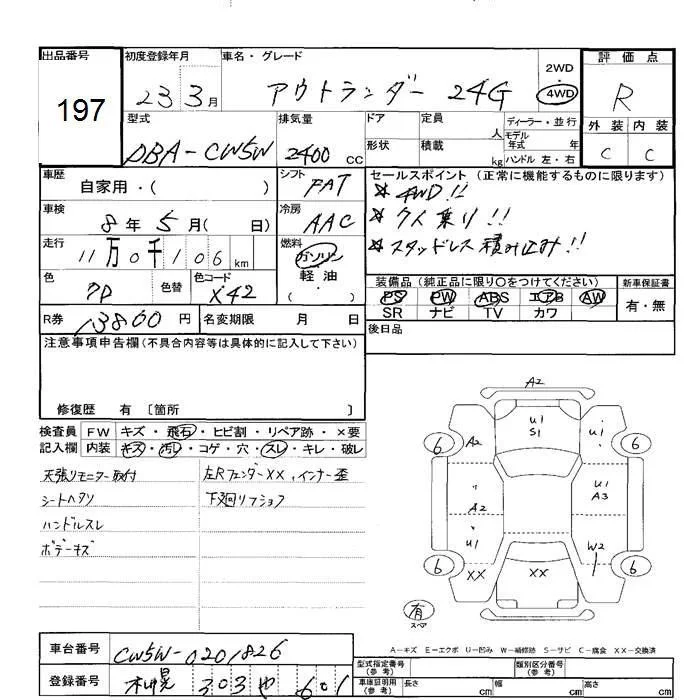 出品番号 初度登録年月 車名・グレード 2WD 評価点
197 23 3月 アウトランダー 24G 4WD R
型式 排気量 ドア 定員 人 ディーラー・並行 外装 内装
DBA-CW5W 2400 CC 形状 積載 kg モデル年式 年 C C
ハンドル 左・右
車歴 シフト セールスポイント (正常に機能するものに限ります)
自家用・( ) FAT ☆ 4WD!!
車検 冷房 ☆ 7人乗り!!
8年5月( 日) AAC ☆ スタッドレス積み込み!!
走行 燃料
11万0千106km ガソリン
色 色替 色コード 軽油 装備品 (純正品に限り〇をつけてください) 新車保証書
X42 ( ・ ) PS PW ABS エアB AW 有・無
SR ナビ TV カワ
R券 13800円 名変期限 月 日 後日品
注意事項申告欄(不具合内容等は具体的に記入して下さい)
修復歴 有 〔箇所 〕
検査員 FW キズ・飛石・ヒビ割・リペア跡・×要
記入欄 内装 キズ・汚レ・コゲ・穴・スレ・キレ・破レ
天張りモニター取付 左Rフェンダー××、インナー歪
シートヘタリ 下廻リフショク
ハンドルスレ
ボデーキズ
A2
U1 S1
A2 U1
6 6
A2 U1 A3
U1 W2
6 6
XX XX
有
スペア
A-キズ E-エクボ U-凹み W-補修跡 S-サビ C-腐食 XX-交換済
車台番号 CW5W-0201826
登録番号 札幌 303 や 601
型式指定番号(参考) 類別区分番号(参考)
車庫証明用(参考) 長さ cm 幅 cm 高さ cm